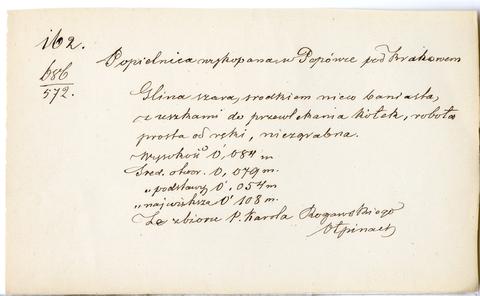 162.
686
572.
Popielnica wykopana w Popówce pod Krakowem
Glina szara, srodkiem nieco baniasta,
z uszkami do przewlekania kółek, robota
prosta od ręki, niezgrabna.
Wysokość 0', 084 m
Śred. otwor. 0, 079 m.
„ podstawy 0', 054 m
„ największa 0' 108 m.
Ze zbioru P. Karola Rogawskiego